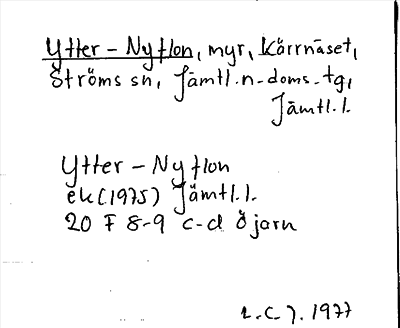 Ytter-Nyflon, myr, Kärrnäset,
Ströms sn, Jämtl.n-doms.tg,
Jämtl.l.
Ytter-Nyflon
ek (1975) Jämtl.l.
20 F 8-9 c-d Öjarn
1977